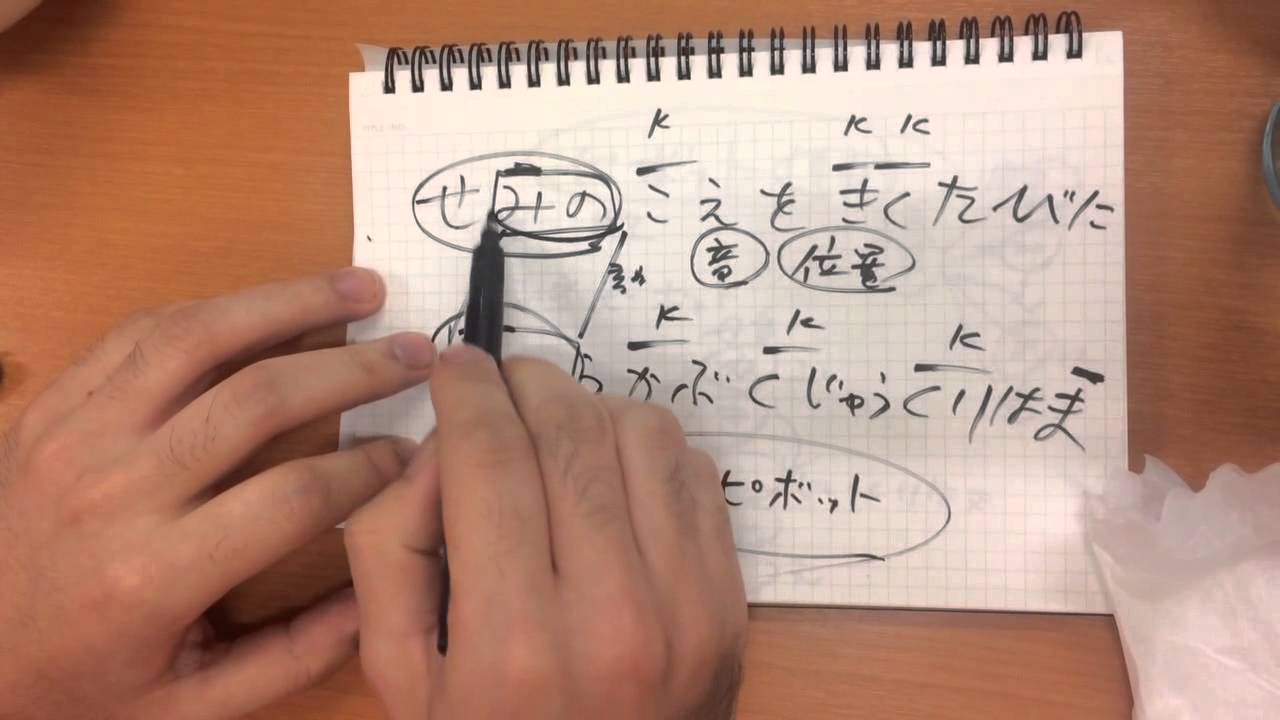 K K K
せみの こえを きくたびに
音 位置
K K K
ら かぶくじゅうくりはま
ピボット